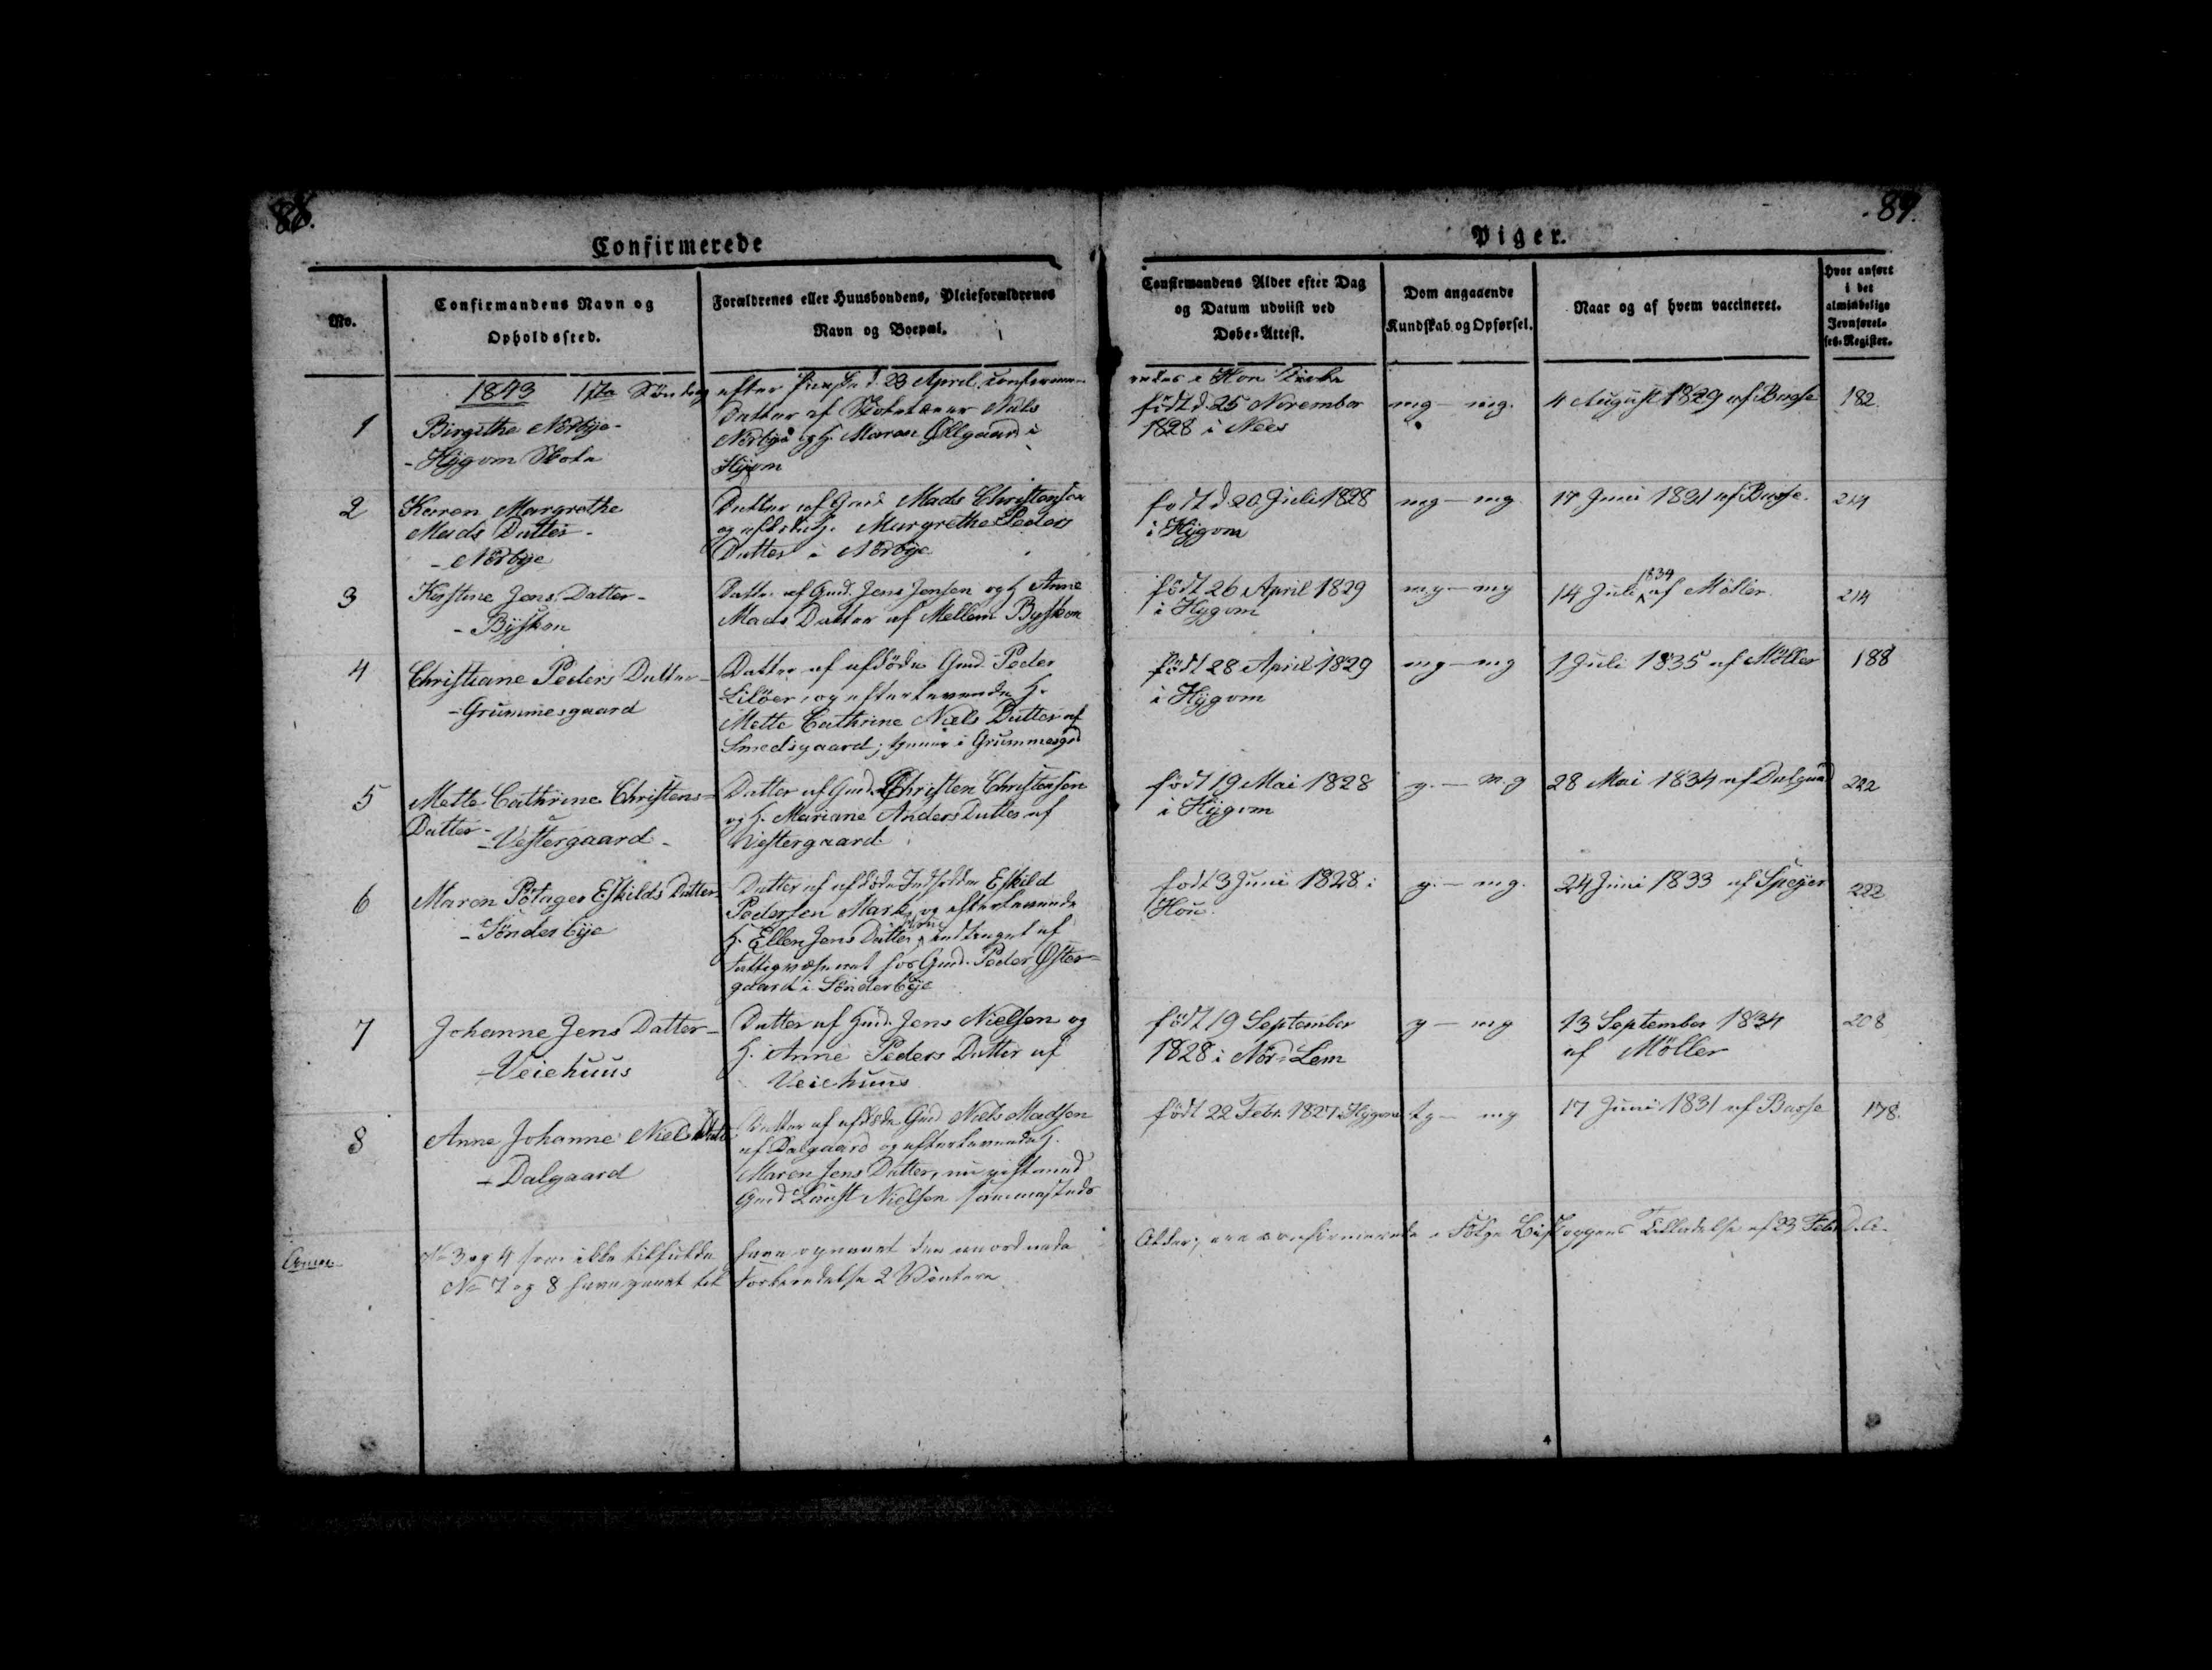 86.
Confirmerede
No.
Confirmandens Navn og
Opholdssted.
Forældrenes eller Huusbondens, Pleieforældrenes
Navn og Boepæl.
1843 1ste Søndag efter Paaske d. 23 April confirme-
1
Birgithe Nörbÿe -
- Hÿgom Skole
Datter af Skolelærer Niels
Nörbÿe og H. Maren Øllgaard i
Hÿgom
2
Karen Margrethe
Mads Datter -
- Nörbÿe
Datter af Gmd Mads Christensen
og afdøde H. Margrethe Peders
Datter i Nörbÿe
3
Kirstine Jens Datter -
- Bÿskon
Datter af Gmd. Jens Jensen og H Anne
Mads Datter af Mellem Bÿskon
4
Christiane Peders Datter -
- Grummesgaard
Datter af afdöde Gmd. Peder
Lilöer, og efterlevende H.
Mette Cathrine Niels Datter af
Smedsgaard; tjener i Grummesgrd
5
Mette Cathrine Christens=
Datter -
- Vestergaard -
Datter af Gmd. Christen Christensen
og H. Mariane Anders Datter af
Vestergaard
6
Maren Pötager Eskilds Datter -
- Sönderbÿe
Datter af afdöde Indsidder Eskild
Pedersen Mark, og efterlevende
H. Ellen Jens Datter, antaget af
Fattigvæsenet hos Gmd. Peder Øster=
gaard i Sönderbÿe
7
Johanne Jens Datter -
- Veiehuus
Datter af Hmd. Jens Nielsen og
H. Anne Peders Datter af
Veiehuus
8
Anne Johanne Niels Datter
- Dalgaard
Datter af afdöde Gmd Niels Madsen
af Dalgaard og efterlevende H.
Maren Jens Datter, nu gift med
Gmd Laust Nielsen sammesteds
Anm.
No 3 og 4 som ikke tilfulde have opnaaet den anordnede
No 7 og 8 have gaaet til Forberedelse 2 Vintere
87.
Piger.
Confirmandens Alder efter Dag
og Datum udviist ved
Døbe-Attest.
Dom angaaende
Kundskab og Opførsel.
Naar og af hvem vaccineret.
Hvor anført
i det
almindelige
Jevnførel-
ses-Register.
redes i Hou Kirke
födt d. 25 November
1828 i Nees
mg - mg.
4 August 1829 af Busse
182
födt d 20 Juli 1828
i Hÿgom
mg - mg.
17 Juni 1831 af Busse.
214
födt 26 April 1829
i Hÿgom
mg - mg
14 Juli 1834 af Möller
214
födt 28 April 1829
i Hÿgom
mg - mg
1 Juli 1835 af Möller
188
födt 19 Mai 1828
i Hÿgom
g. - mg
28 Mai 1834 af Dalgaard
222
födt 3 Juni 1828 i
Hou.
g. - mg.
24 Juni 1833 af Speÿer
222
födt 19 September
1828 i Nör-Lem
g - mg
13 September 1834
af Möller
208
födt 22 Febr. 1827 i Hÿgom
tg - mg
17 Juni 1831 af Busse
178.
Alder, ere confirmerede i Fölge Biskoppens Tilladelse af 23 Febr d. A.